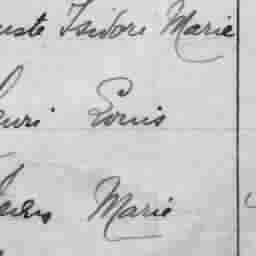 uste Isidore Marie
enri Louis
Marie